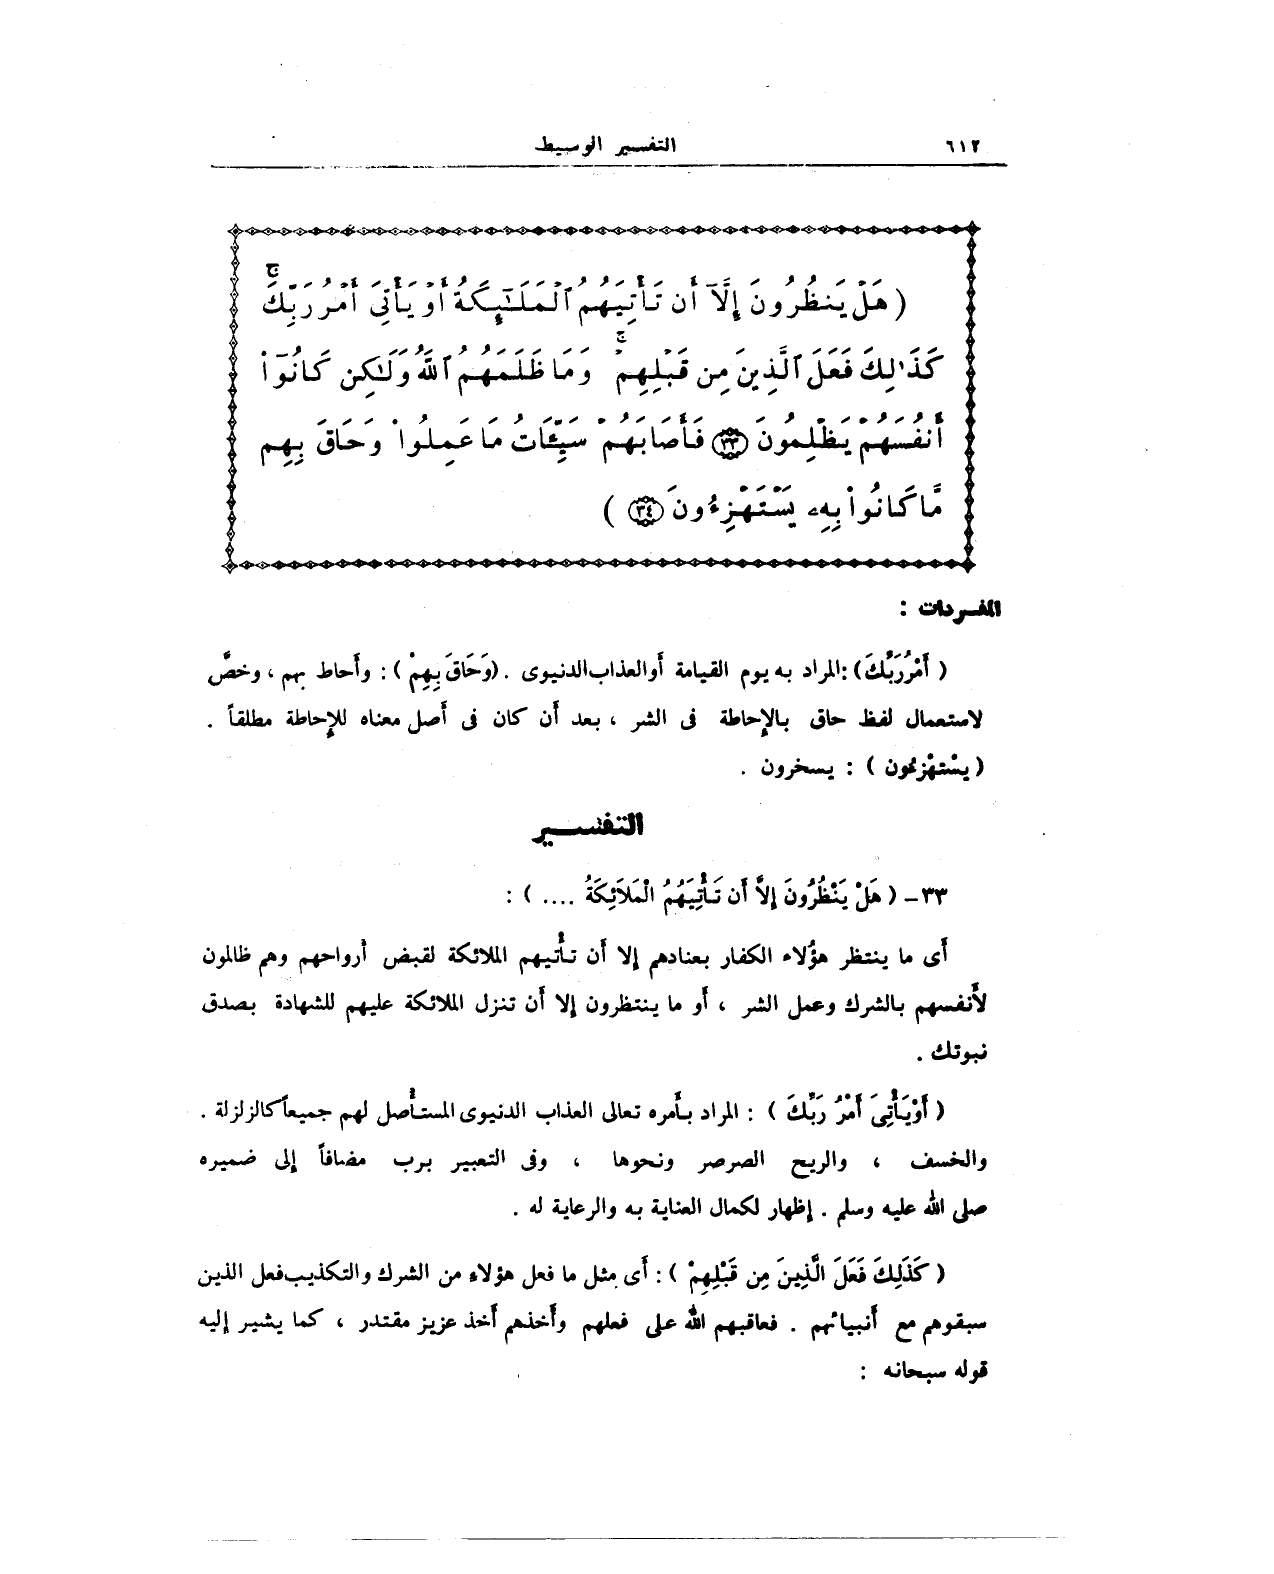 ٦١٢
التفسير الوسيط
( هَلْ يَنظُرُونَ إِلَّآ أَن تَأْتِيَهُمُ ٱلْمَلَـٰٓئِكَةُ أَوْ يَأْتِىَ أَمْرُ رَبِّكَ ۚ
كَذَٰلِكَ فَعَلَ ٱلَّذِينَ مِن قَبْلِهِمْ ۚ وَمَا ظَلَمَهُمُ ٱللَّهُ وَلَـٰكِن كَانُوٓا۟
أَنفُسَهُمْ يَظْلِمُونَ ٣٣ فَأَصَابَهُمْ سَيِّـَٔاتُ مَا عَمِلُوا۟ وَحَاقَ بِهِم
مَّا كَانُوا۟ بِهِۦ يَسْتَهْزِءُونَ ٣٤ )
المفردات :
( أَمْرُ رَبِّكَ ) : المراد به يوم القيامة أو العذاب الدنيوى . ( وَحَاقَ بِهِمْ ) : وأحاط بهم ، وخصَّ
لاستعمال لفظ حاق بالإحاطة فى الشر ، بعد أن كان فى أصل معناه للإحاطة مطلقاً .
( يسْتهْزئون ) : يسخرون .
التفسير
٣٣ – ( هَلْ يَنْظُرُونَ إِلاَّ أَن تَأْتِيَهُمُ الْمَلاَئِكَةُ .... ) :
أى ما ينتظر هؤلاء الكفار بعنادهم إلا أن تأتيهم الملائكة لقبض أرواحهم وهم ظالمون
لأنفسهم بالشرك وعمل الشر ، أو ما ينتظرون إلا أن تنزل الملائكة عليهم للشهادة بصدق
نبوتك .
( أَوْ يَأْتِىَ أَمْرُ رَبِّكَ ) : المراد بأمره تعالى العذاب الدنيوى المستأصل لهم جميعاً كالزلزلة .
والخسف ، والريح الصرصر ونحوها ، وفى التعبير برب مضافاً إلى ضميره
صلى الله عليه وسلم . إظهار لكمال العناية به والرعاية له .
( كَذَلِكَ فَعَلَ الَّذِينَ مِن قَبْلِهِمْ ) : أى مثل ما فعل هؤلاء من الشرك والتكذيب فعل الذين
سبقوهم مع أنبيائهم . فعاقبهم الله على فعلهم وأخذهم أخذ عزيز مقتدر ، كما يشير إليه
قوله سبحانه :